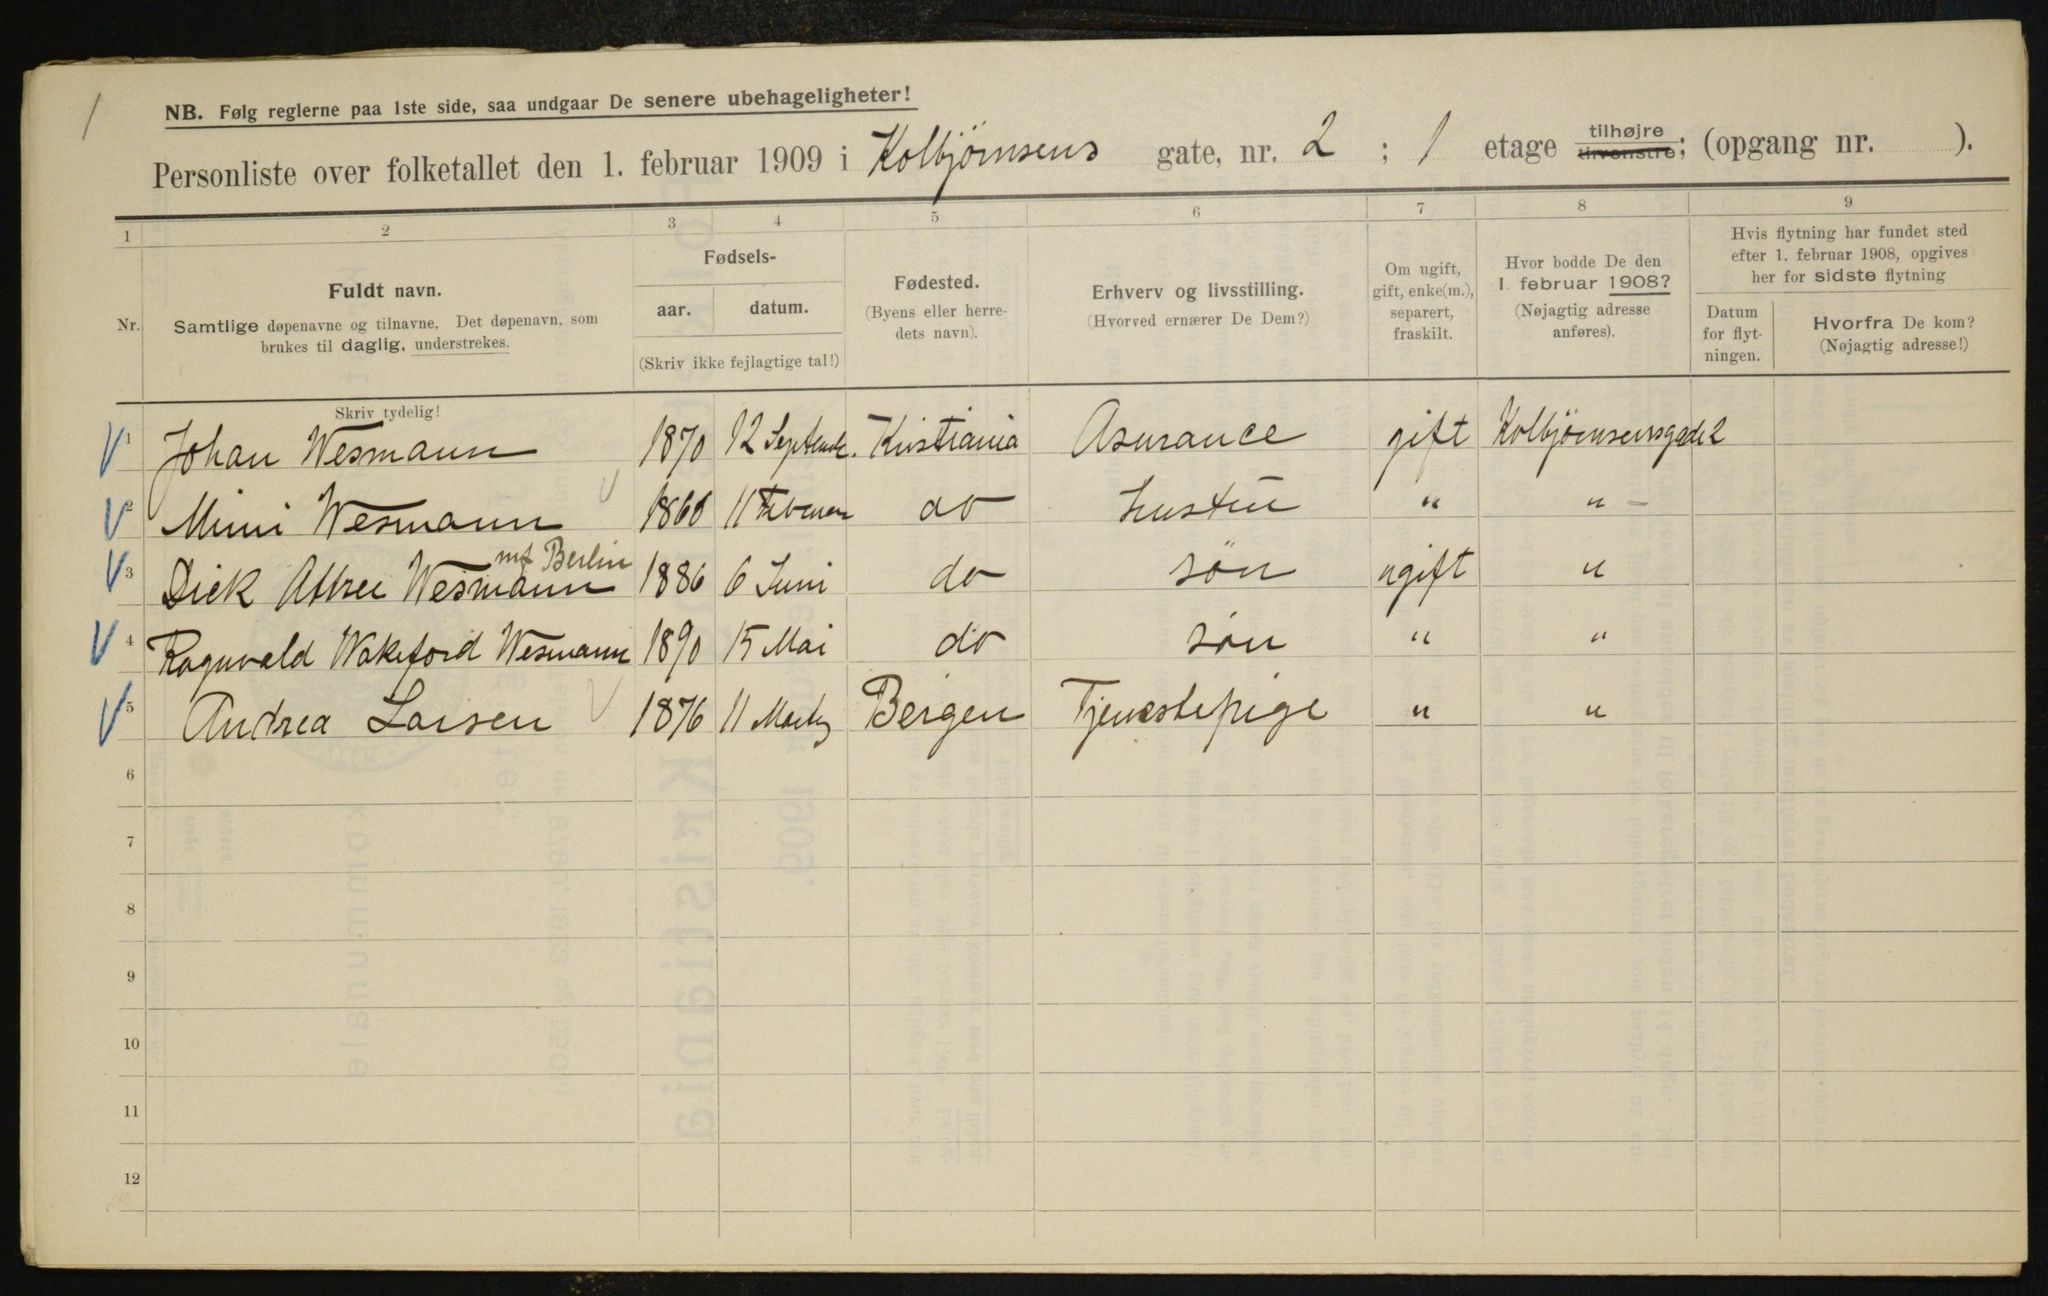 1
NB. Følg reglerne paa 1ste side, saa undgaar De senere ubehageligheter!
Personliste over folketallet den 1. februar 1909 i Kolbjørnsens gate, nr. 2 ; 1 etage tilhøjre tilvenstre; (opgang nr. ).
1 2 3 4 5 6 7 8 9
Nr.
Fuldt navn.
Samtlige døpenavne og tilnavne. Det døpenavn, som
brukes til daglig, understrekes.
Fødsels-
aar. datum.
(Skriv ikke fejlagtige tal!)
Fødested.
(Byens eller herre-
dets navn).
Erhverv og livsstilling.
(Hvorved ernærer De Dem?)
Om ugift,
gift, enke(m.),
separert,
fraskilt.
Hvor bodde De den
1. februar 1908?
(Nøjagtig adresse
anføres).
Hvis flytning har fundet sted
efter 1. februar 1908, opgives
her for sidste flytning
Datum
for flyt-
ningen.
Hvorfra De kom?
(Nøjagtig adresse!)
Skriv tydelig!
1 Johan Wesmann 1870 12 Septembr. Kristiania Asurance gift Kolbjørnsensgade 2
2 Mimi Wesmann 11 Februar do Hustru " " –
mf Berlin
3 Dick Attree Wesmann 1886 6 Juni do søn ugift "
4 Ragnvald Wakeford Wesmann 1890 15 Mai do søn " "
5 Andrea Larsen 1876 11 Bergen Tjenestepige " "
6
7
8
9
10
11
12